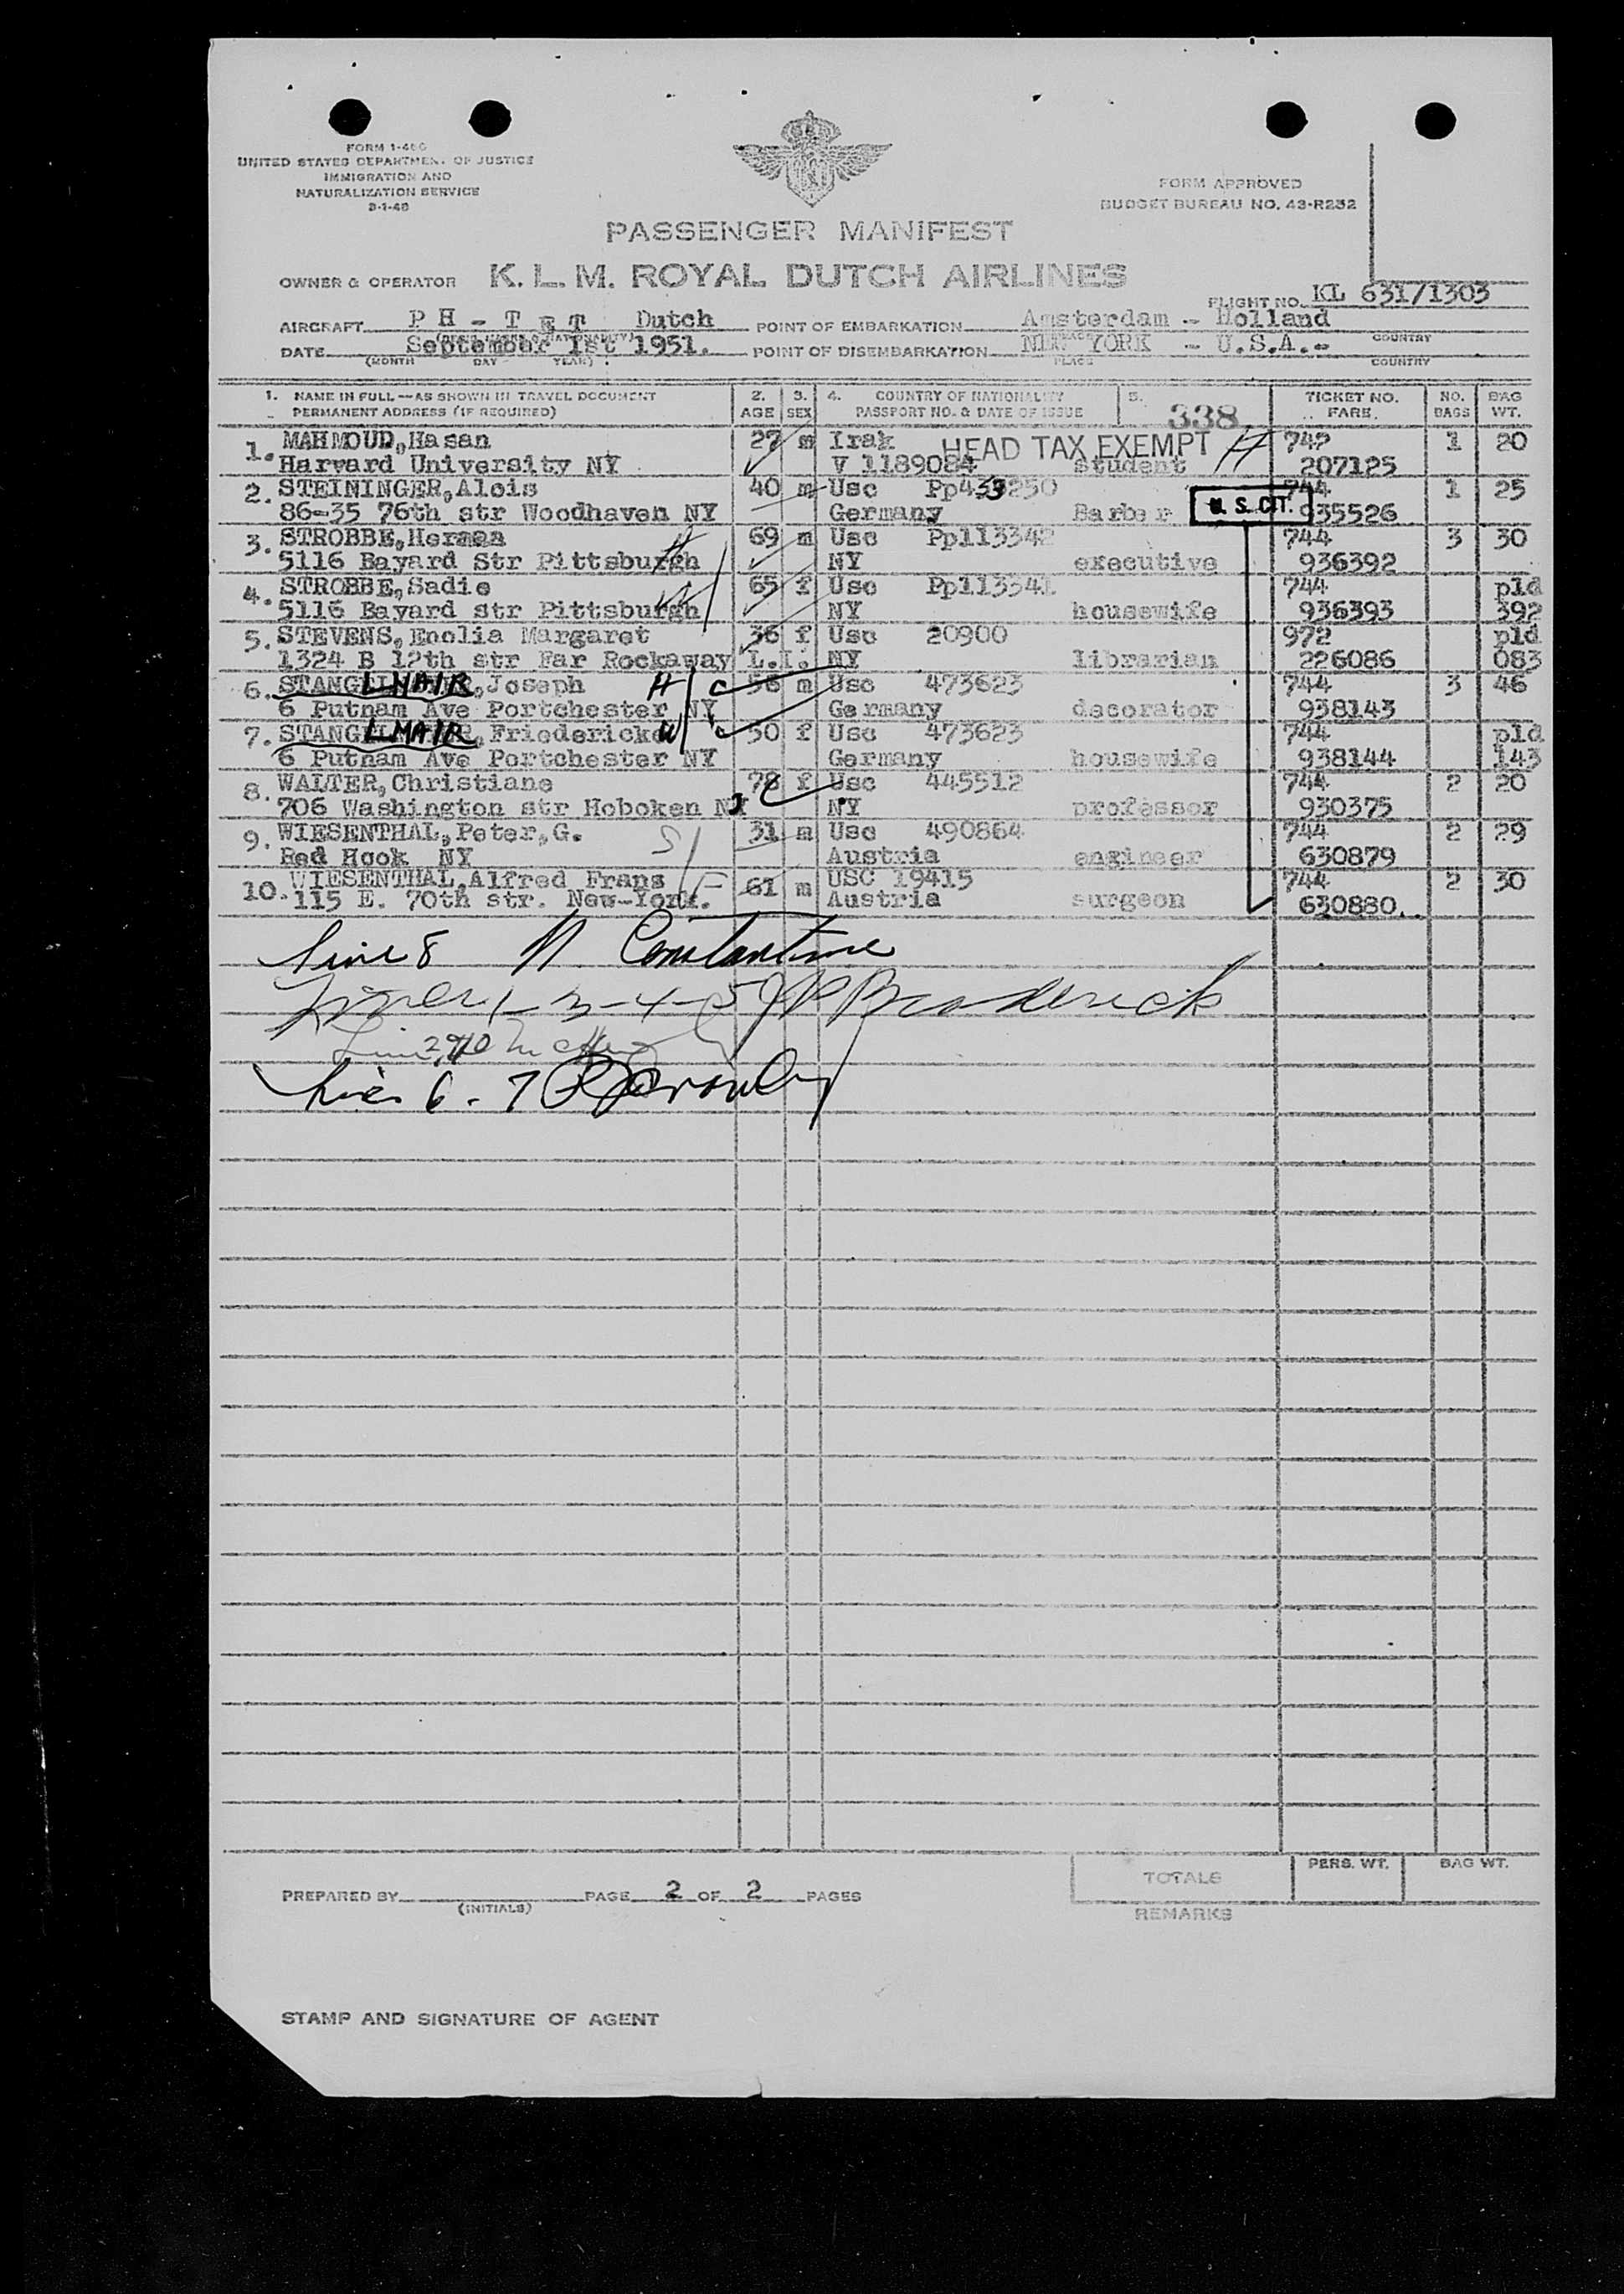 FORM I-466
UNITED STATES DEPARTMENT OF JUSTICE
IMMIGRATION AND
NATURALIZATION SERVICE
FORM APPROVED
BUDGET BUREAU NO. 43-R232
PASSENGER MANIFEST
OWNER & OPERATOR K. L. M. ROYAL DUTCH AIRLINES
FLIGHT NO. KL 631/1303
AIRCRAFT PH - TET Dutch POINT OF EMBARKATION Amsterdam - Holland
COUNTRY
DATE September 1st 1951. POINT OF DISEMBARKATION NEW YORK - U.S.A.-
(MONTH DAY YEAR) PLACE COUNTRY
1. NAME IN FULL—AS SHOWN IN TRAVEL DOCUMENT 2. 3. 4. COUNTRY OF NATIONALITY 5. 338 TICKET NO. NO. BAG
PERMANENT ADDRESS (IF REQUIRED) AGE SEX PASSPORT NO. & DATE OF ISSUE FARE. BAGS WT.
1. MAHMOUD, Hasan 27 m Irak HEAD TAX EXEMPT H 742 1 20
Harvard University NY V 1189084 student 207125
2. STEININGER, Alois 40 m Usc 744 1 25
86-35 76th str Woodhaven NY Germany Barber U. S. CIT. 935526
3. STROBBE, Herman 69 m Usc Pp113342 744 3 30
5116 Bayard Str Pittsburgh NY executive 936392
4. STROBBE, Sadie 65 f Usc Pp113341 744 pld
5116 Bayard str Pittsburgh NY housewife 936393 392
5. STEVENS, Enolia Margaret 36 f Usc 20900 972 pld
1324 B 12th str Far Rockaway L.I. NY librarian 226086 083
6. STANGLLMAIR, Joseph H 56 m Usc 473623 744 3 46
6 Putnam Ave Portchester NY Germany decorator 938143
7. STANGLLMAIR, Friedericke W 50 f Usc 473623 744 pld
6 Putnam Ave Portchester NY Germany housewife 938144 143
8. WALTER, Christiane 78 f Usc 445512 744 2 20
706 Washington str Hoboken NJ NY professor 930375
9. WIESENTHAL, Peter, G. S 31 m Usc 490864 744 2 29
Red Hook NY Austria engineer 630879
10. WIESENTHAL, Alfred Frans F 61 m USC 19415 744 2 30
115 E. 70th str. New-York. Austria surgeon 630880.
Line 8 N Constantine
Lines 1-3-4-5 JP Broderick
Line 2 9 10
Lines 6-7
PREPARED BY PAGE 2 OF 2 PAGES
(INITIALS)
TOTALS PERS. WT. BAG WT.
REMARKS
STAMP AND SIGNATURE OF AGENT